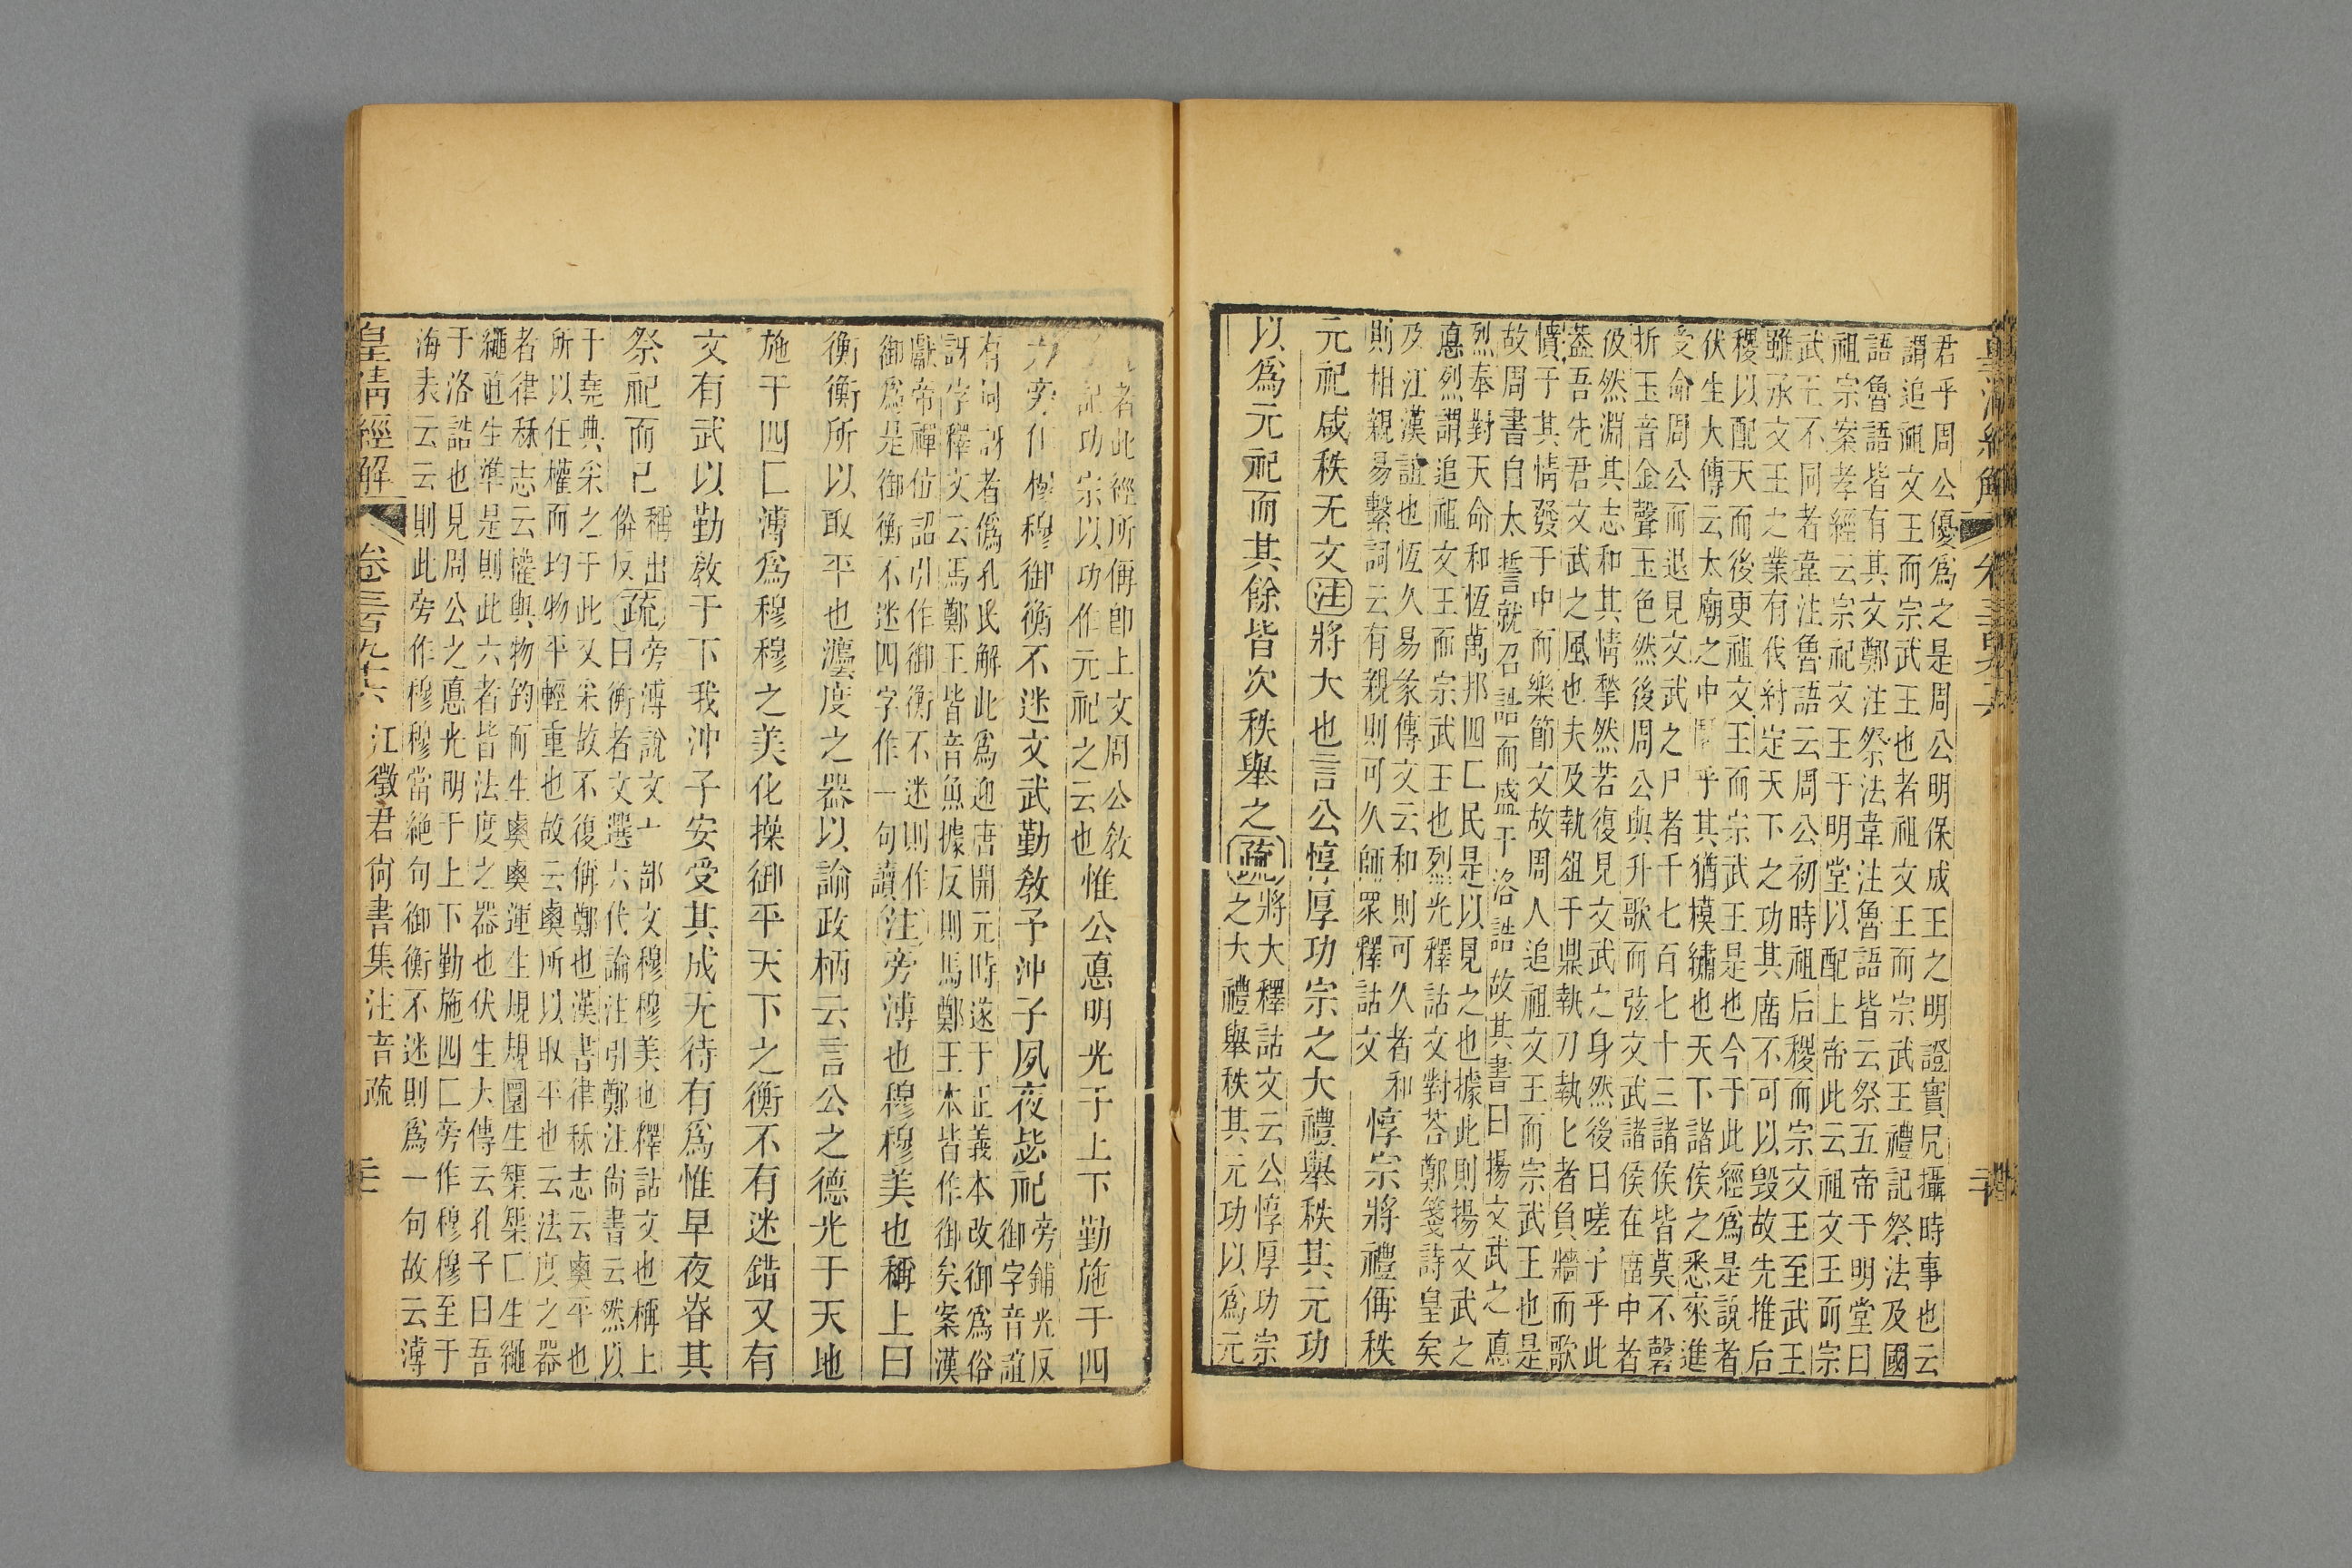 皇清經解
君乎周公優爲之是周公明保成王之明證實凥攝時事也云
謂追祖文王而宗武王也者祖文王而宗武王禮記祭法及國
語魯語皆有其文鄭注祭法韋注魯語皆云祭五帝于明堂曰
祖宗案孝經云宗祀文王于明堂以配上帝此云祖文王而宗
武王不同者韋注魯語云周公初時祖后稷而宗文王至武王
雖承文王之業有伐紂定天下之功其庿不可以毁故先推后
稷以配天而後更祖文王而宗武王是也今于此經爲是說者
伏生大傳云太廟之中 乎其猶模繡也天下諸侯之悉來進
受命周公而退見文武之尸者千七百七十三諸侯皆莫不磬
折玉音金聲玉色然後周公與升歌而弦文武諸侯在庿中者
伋然淵其志和其情愀然若復見文武之身然後曰嗟子乎此
蓋吾先君文武之風也夫及執俎于鼎執刀執匕者負牆而歌
憤于其情發于中而樂節文故周人追祖文王而宗武王也是
故周書自太誓就召誥而盛于洛誥故其書曰揚文武之悳
烈奉對天命和恆萬邦四匚民是以見之也據此則揚文武之
悳烈謂追祖文王而宗武王也烈光釋詁文對荅鄭箋詩皇矣
及江漢誼也恆久易彖傳文云和則可久者
則相親易繫詞云有親則可久師眾釋詁文 和 惇宗將禮偁秩
元祀咸秩无文注將大也言公惇厚功宗之大禮舉秩其元功
以爲元祀而其餘皆次秩舉之疏將大釋詁文云公惇厚功宗
之大禮舉秩其元功以爲元
者此經所偁卽上文周公敎
記功宗以功作元祀之云也 惟公悳明光于上下勤施于四
方旁作穆穆御衡不迷文武勤敎予沖子夙夜毖祀旁鋪光反
御字音誼
有向訝者僞孔氏解此爲迎唐開元時遂于正義本改御爲俗
訝字釋文云馬鄭王皆音魚據反則馬鄭王本皆作御矣案漢
獻帝禪位詔引作御衡不迷則作
御爲是御衡不迷四字作一句讀 注旁溥也穆穆美也稱上曰
衡衡所以取平也灋度之器以諭政柄云言公之德光于天地
施于四匚溥爲穆穆之美化操御平天下之衡不有迷錯又有
文有武以勤敎于下我沖子安受其成无待有爲惟早夜眘其
祭祀而已稱出
偁反 疏旁溥說文丄部文穆穆美也釋詁文也稱上
曰衡者文選六代論注引鄭注尙書云然以
于堯典采之于此又采故不復偁鄭也漢書律秝志云衡平也
所以任權而均物平輕重也故云衡所以取平也云法度之器
者律秝志云權與物鈞而生衡衡運生規規圜生榘榘匚生繩
繩直生準是則此六者皆法度之器也伏生大傳云孔子曰吾
于洛誥也見周公之悳光明于上下勤施四匚旁作穆穆至于
海表云云則此旁作穆穆當絕句御衡不迷則爲一句故云溥
皇清經解 卷三百九十六 江徵君尙書集注音疏